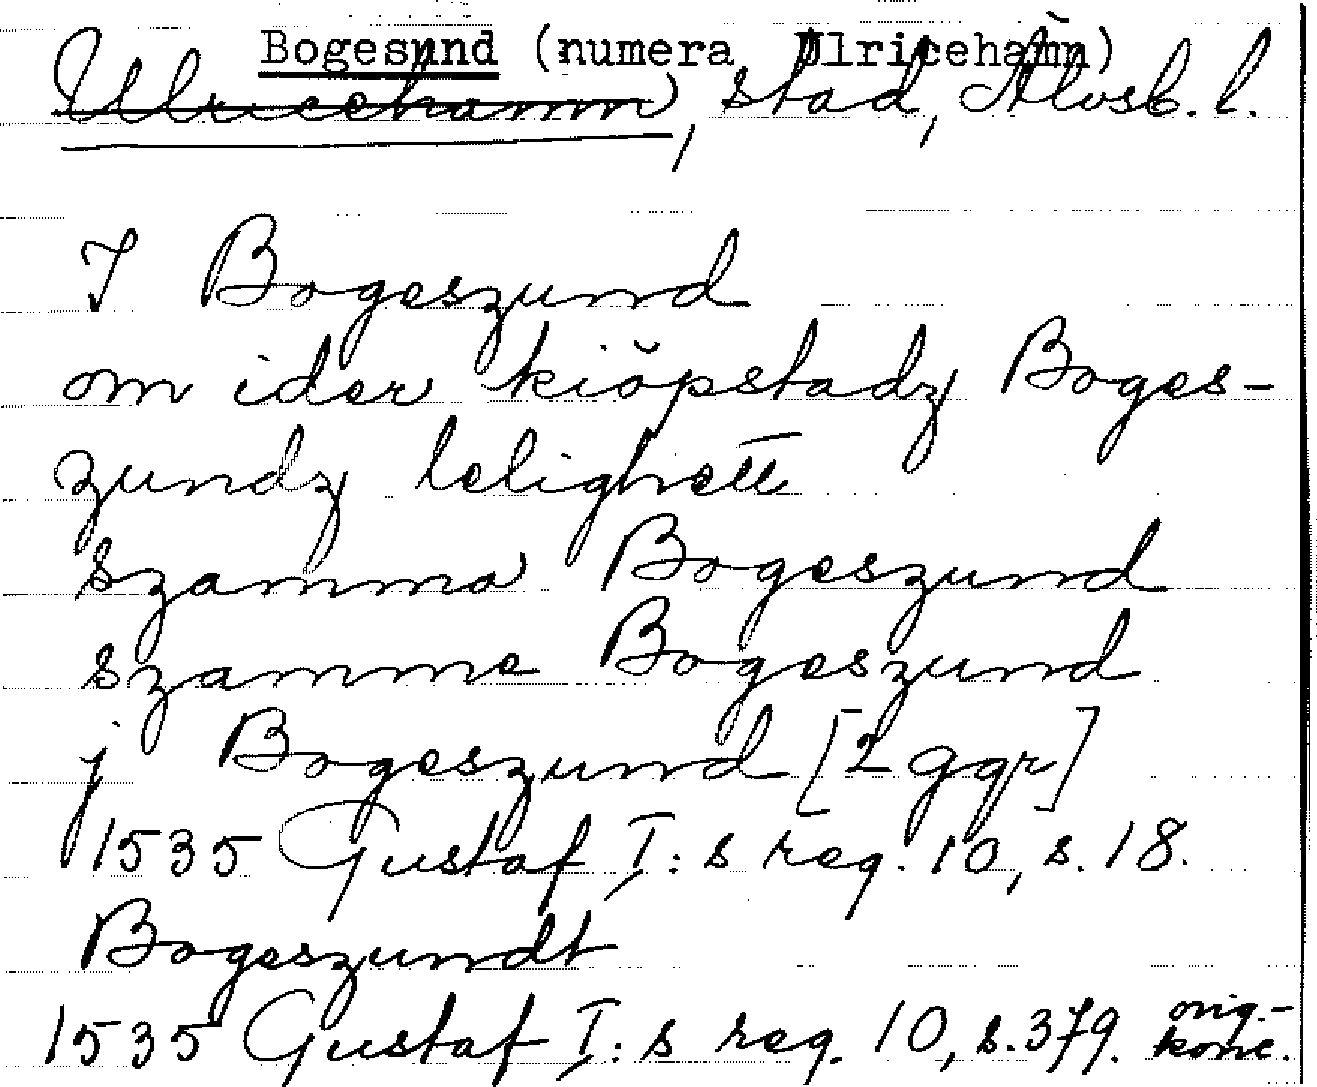 Bogesund (numera Ulricehamn)
Ulricehamn, stad, Älvsb. l.
I Bogeszund
om ider kiöpstadz Boges-
zundz lelighett
szamma Bogeszund
szamme Bogeszund
j Bogeszund [2 ggr]
1535 Gustaf I:s reg. 10, s. 18.
Bogeszundt
1535 Gustaf I:s reg. 10, s. 379. orig.-
konc.